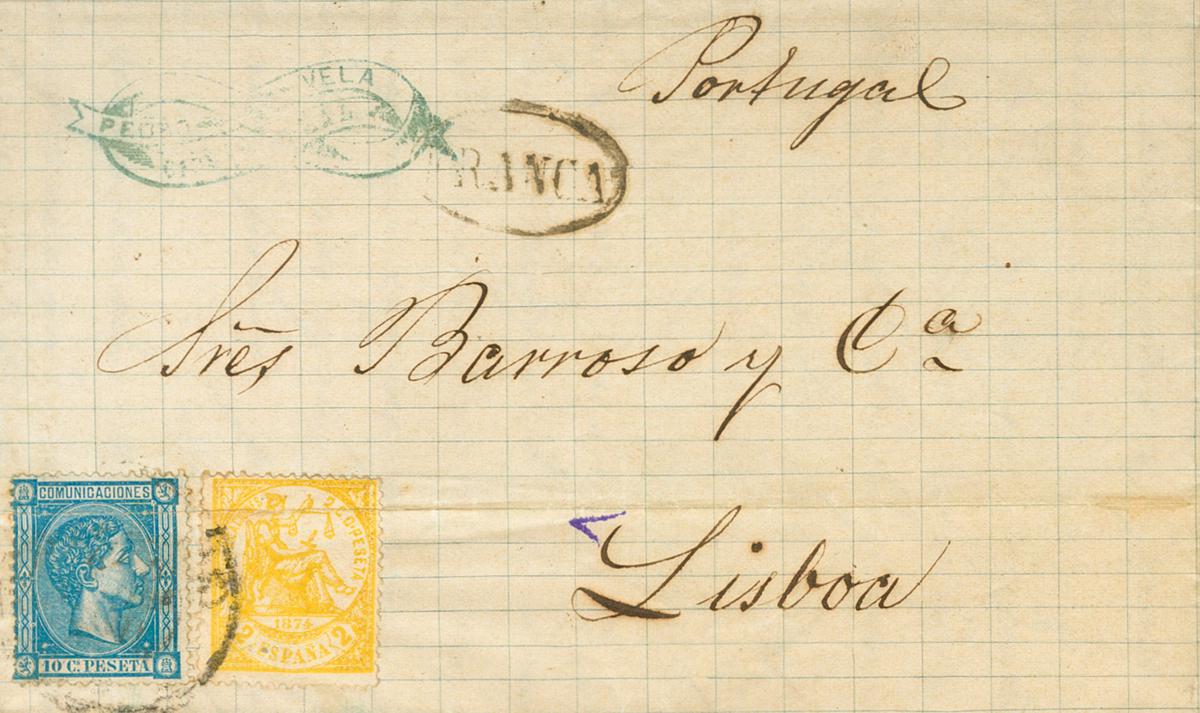 Portugal
VELA
PEDRO
FRANCA
Srẽs Barroso y Cª
Lisboa
COMUNICACIONES
10 Cs PESETA
2 C. D. PESETA
1874
2 ESPAÑA 2